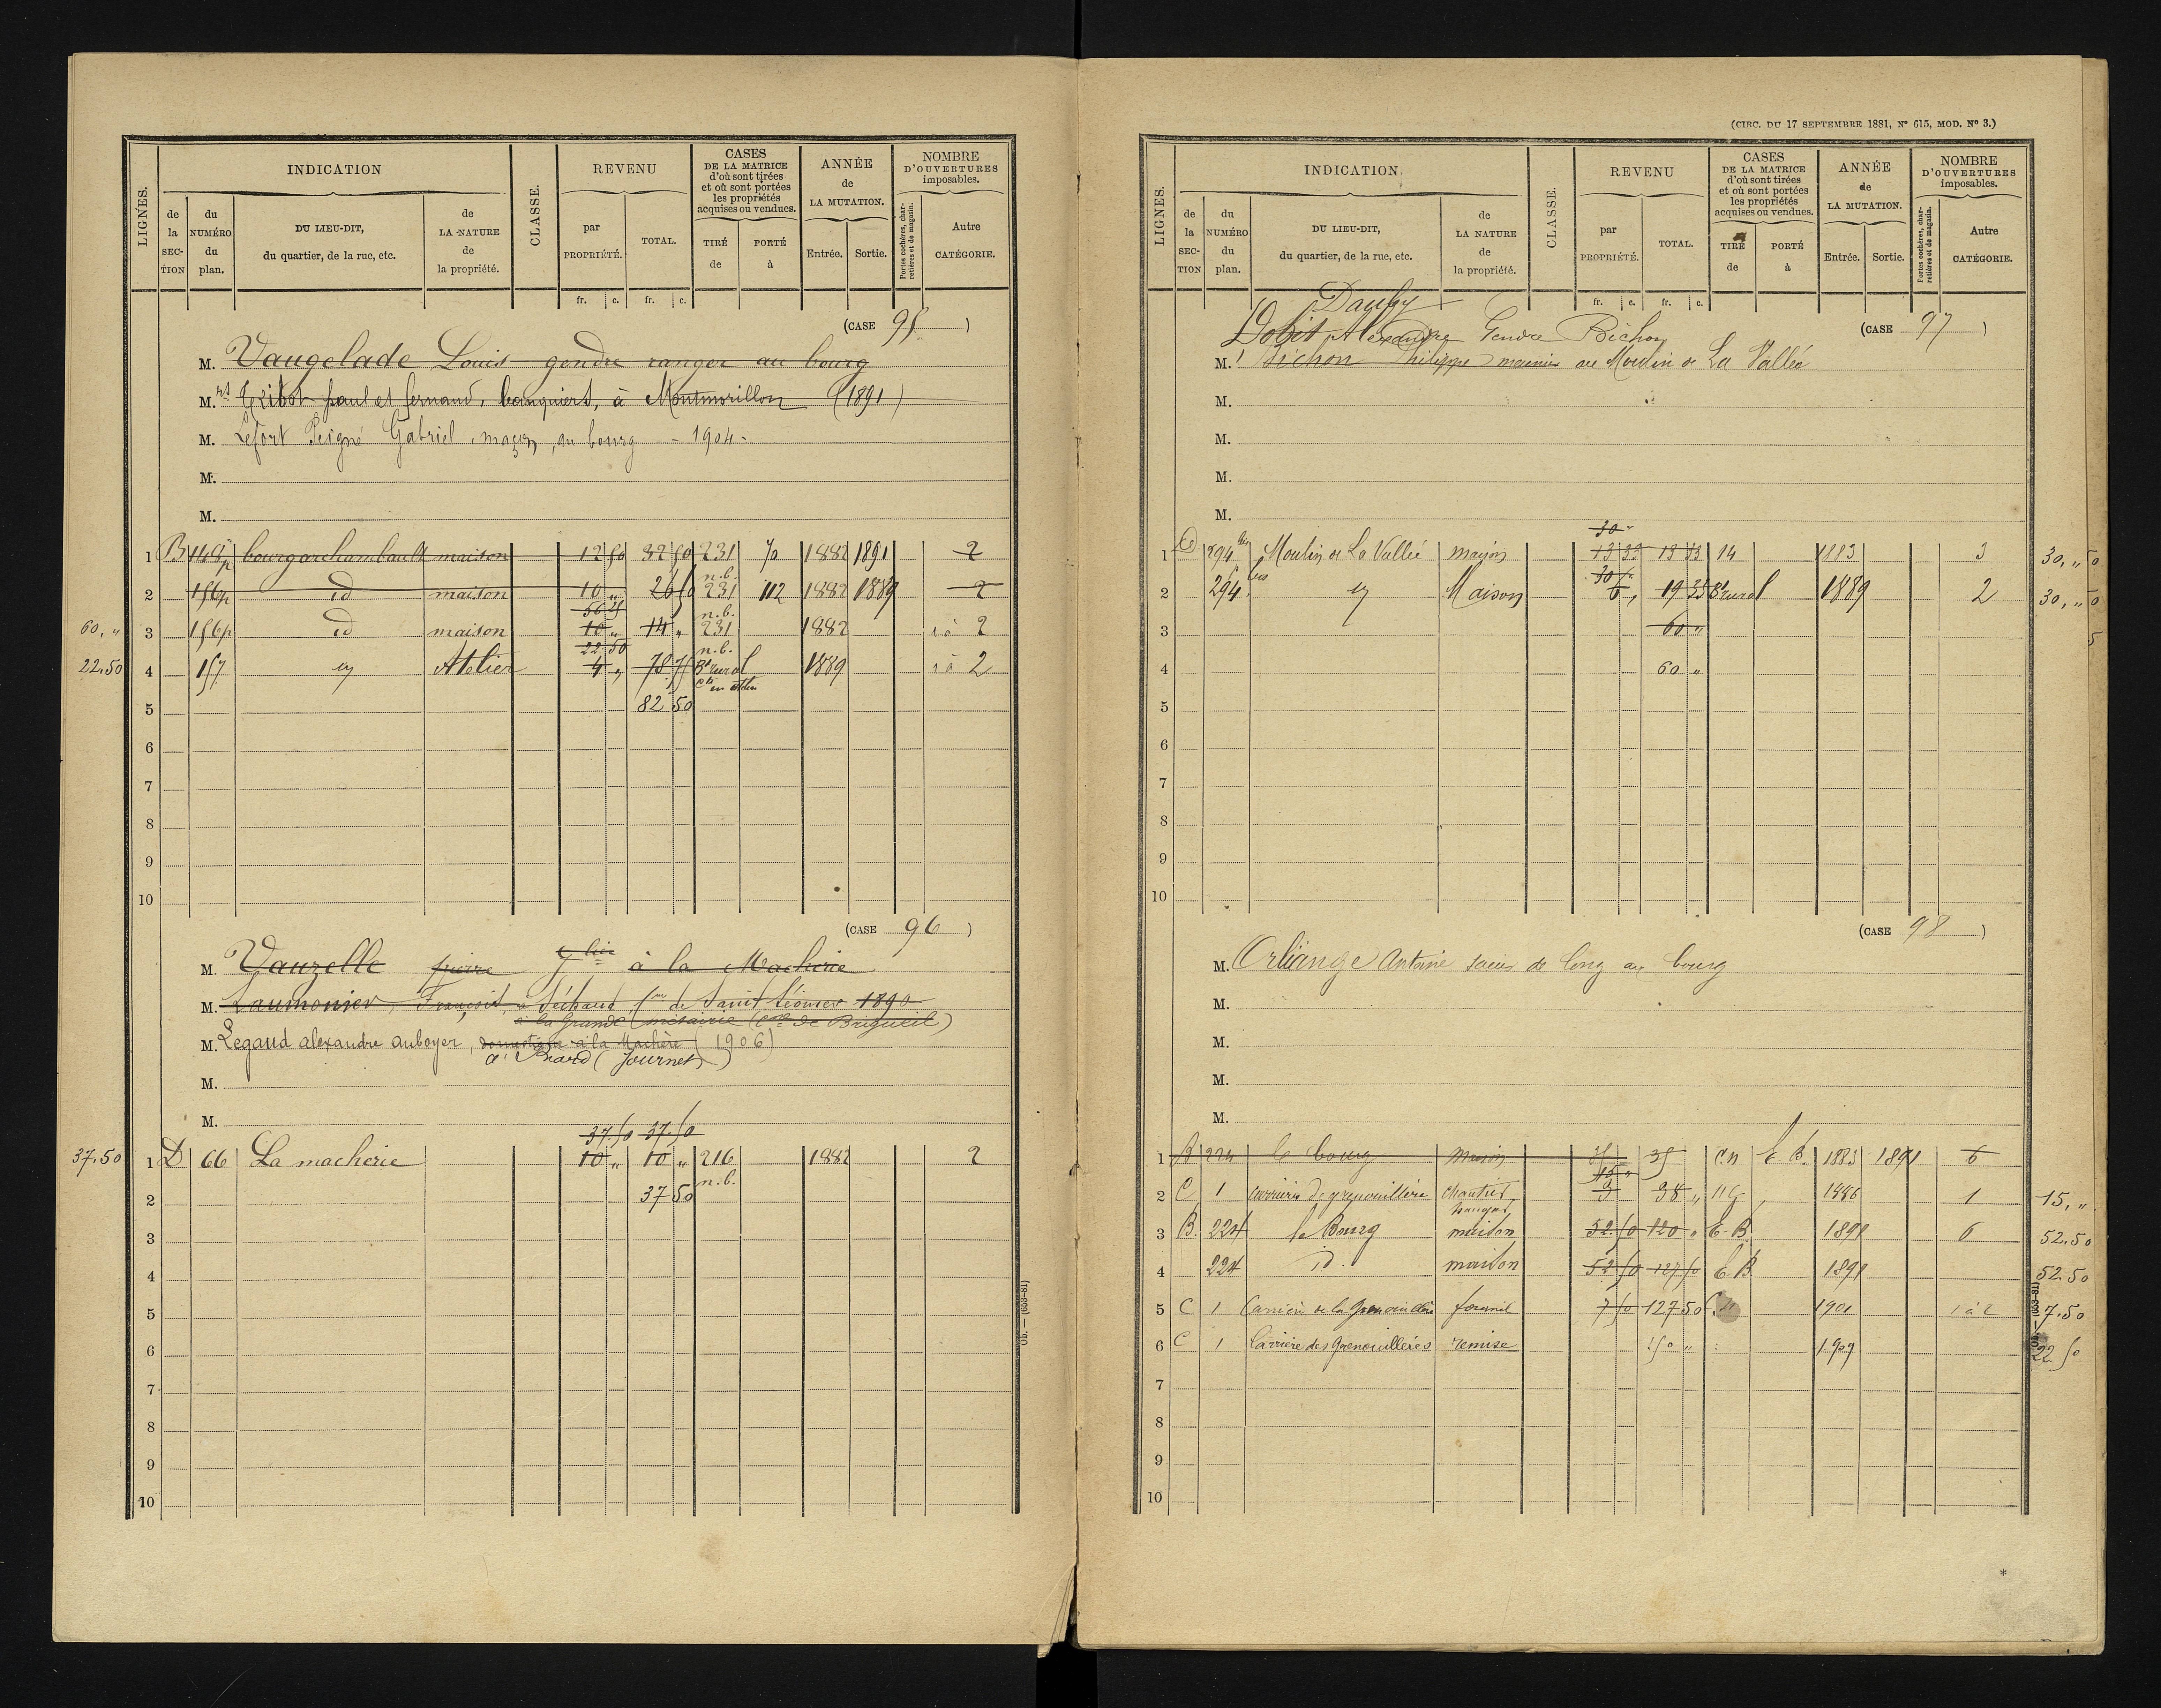 LIGNES.
INDICATION
de la SEC-TION
du NUMÉRO du plan.
DU LIEU-DIT, du quartier, de la rue, etc.
de LA NATURE de la propriété.
CLASSE.
REVENU
par PROPRIÉTÉ.
TOTAL.
CASES DE LA MATRICE d'où sont tirées et où sont portées les propriétés acquises ou vendues.
TIRÉ de
PORTÉ à
ANNÉE de LA MUTATION.
Entrée.
Sortie.
NOMBRE D'OUVERTURES imposables.
Portes cochères, charretières et de magasin.
Autre CATÉGORIE.
fr. c. fr. c.
(CASE 95)
M. Vaugelade Louis gendre ranger au bourg
M.rs Tribot paul et fernand, banquiers, à Montmorillon (1891)
M. Lefort Peigné Gabriel, maçon, au bourg - 1904 -
M.
M.
1 B 149p bourgarchambault maison 12 50 32 50 231 70 1882 1891 2
n.b.
2 156p id maison 10 " 26 50 231 112 1882 1889 2
56 25 n.b.
60, " 3 156p id maison 10 " 14 " 231 1882 1 à 2
22 50 n.b.
22.50 4 157 Atelier 4 " 78 75 Bt rural 1889 1 à 2
5 82 50
6
7
8
9
10
(CASE 96)
M. Vauzelle pierre à la Macherie
M. Laumonier, François, à Séchaud, Cne de Saint Léomer 1890
à la Grande métairie (Cne de Brigueil)
M. Legaud alexandre auboyer, domestique à la Machère (1906)
à Biard (Journet)
M.
M.
37.50 37.50
37.50 1 D 66 La macherie 10 " 10 " 216 1882 2
n.b.
2 37 50
3
4
5
6
7
8
9
10
Ob. — (653-81)
(CIRC. DU 17 SEPTEMBRE 1881, N° 615, MOD. N° 3.)
LIGNES.
INDICATION.
de la SEC-TION
du NUMÉRO du plan.
DU LIEU-DIT, du quartier, de la rue, etc.
de LA NATURE de la propriété.
CLASSE.
REVENU
par PROPRIÉTÉ.
TOTAL.
CASES DE LA MATRICE d'où sont tirées et où sont portées les propriétés acquises ou vendues.
TIRÉ de
PORTÉ à
ANNÉE de LA MUTATION.
Entrée.
Sortie.
NOMBRE D'OUVERTURES imposables.
Portes cochères, charretières et de magasin.
Autre CATÉGORIE.
fr. c. fr. c.
Dauby
(CASE 97)
Dobit Alexandre Gendre Bichon
M. Bichon Philippe meunier au Moulin de La Vallée
M.
M.
M.
M.
30 "
1 294 bis Moulin de La Vallée maison 13 33 13 33 14 1883 3 30, "
30 "
2 294 bis Maison 6 " 19 33 Bt rural 1889 2 30, "
3 60 "
4 60 "
5
6
7
8
9
10
(CASE 98)
M. Orliange Antoine scieur de long au bourg
M.
M.
M.
M.
1 B 224 le bourg maison 35 35 C.n E.B. 1883 1891 6
15 "
2 C 1 carrière de grenouillère 3 38 " 1886 1 15, "
hangar
3 B. 224 le Bourg maison 52.50 120 " E.B. 1891 6 52.50
4 224 id. maison 52.50 127.50 E.B. 1891 52.50
5 C 1 Carrière de la Grenouillère fournil 7.50 127 50 C.n 1901 1 à 2 7.50
6 C 1 Carrière des Grenouillères remise 150 " 1909 22.50
7
8
9
10
Ob. — (653-81)
*